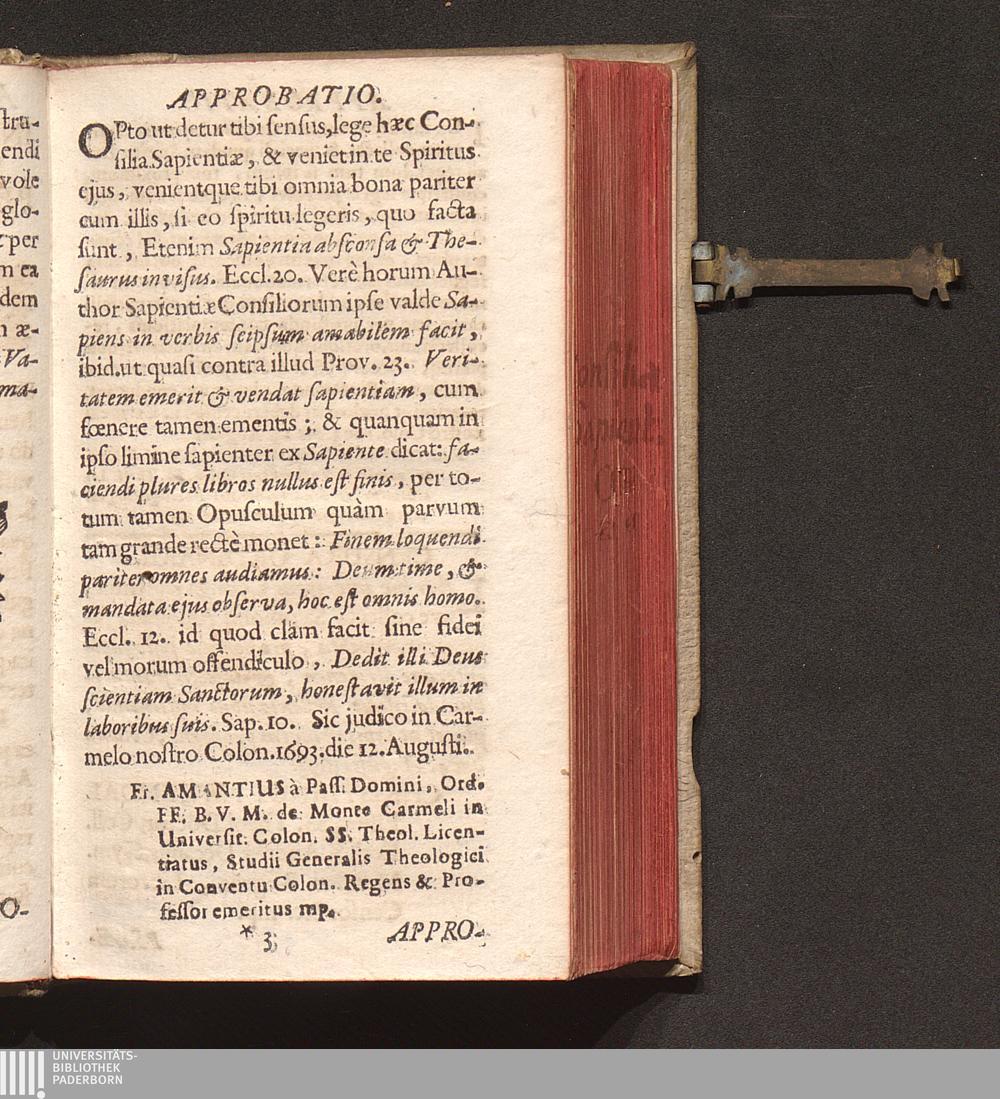 APPROBATIO.
OPto ut detur tibi sensus, lege hæc Con-
silia Sapientiæ, & veniet in te Spiritus
ejus, venientque tibi omnia bona pariter
cum illis, si eo spiritu legeris, quo facta
sunt, Etenim Sapientia absconsa & The-
saurus invisus. Eccl. 20. Verè horum Au-
thor Sapientiæ Consiliorum ipse valde Sa-
piens in verbis seipsum amabilem facit,
ibid. ut quasi contra illud Prov. 23. Veri-
tatem emerit & vendat sapientiam, cum
fœnere tamen ementis; & quanquam in
ipso limine sapienter ex Sapiente dicat: fa-
ciendi plures libros nullus est finis, per to-
tum tamen Opusculum quàm parvum
tam grande rectè monet: Finem loquendi
pariter omnes audiamus: Deum time, &
mandata ejus observa, hoc est omnis homo.
Eccl. 12. id quod clàm facit sine fidei
vel morum offendiculo, Dedit illi Deus
scientiam Sanctorum, honestavit illum in
laboribus suis. Sap. 10. Sic judico in Car-
melo nostro Colon. 1693. die 12. Augusti.
Fr. AMANTIUS à Pass. Domini, Ord.
FF. B. V. M. de Monte Carmeli in
Universit. Colon. SS. Theol. Licen-
tiatus, Studii Generalis Theologici
in Conventu Colon. Regens & Pro-
fessor emeritus mp.
* 3
APPRO-
stru-
endi
vole
glo-
per
m ea
dem
æ-
Va-
ma-
O-
UNIVERSITÄTS-
BIBLIOTHEK
PADERBORN